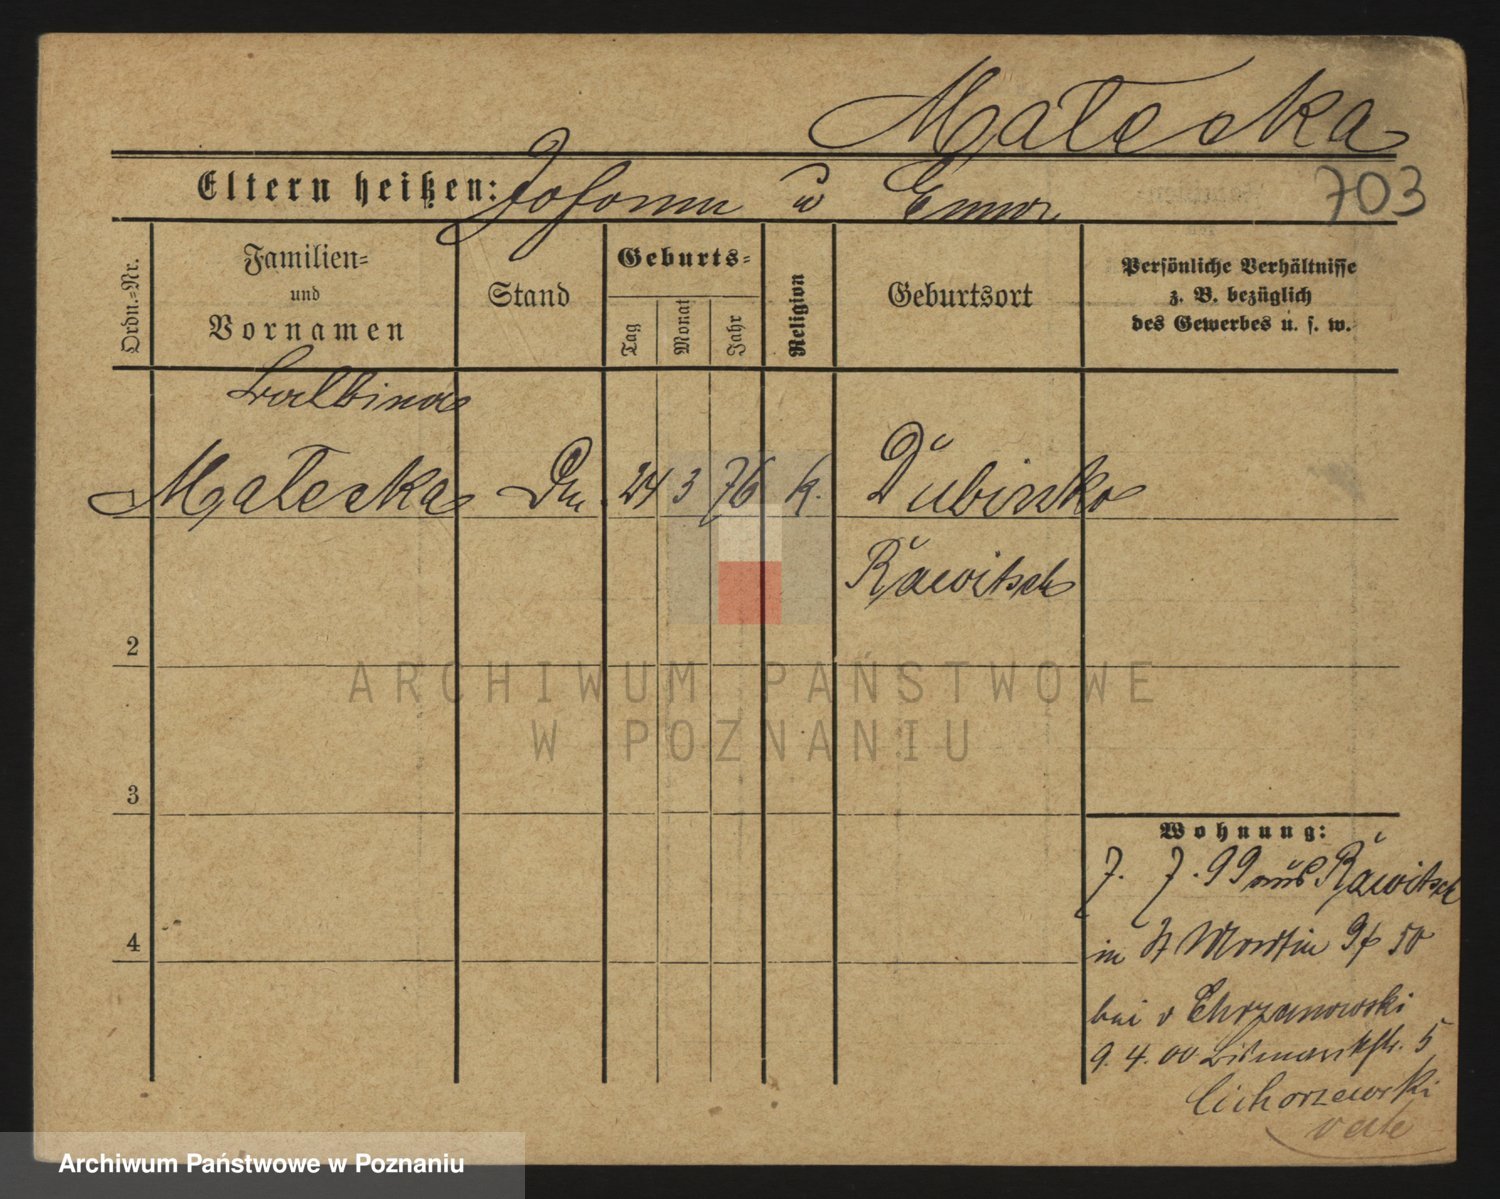 Małecka
Eltern heißen: Johann u Emma
703
Ordn.=Nr.
Familien=
und
Vornamen
Stand
Geburts=
Tag
Monat
Jahr
Religion
Geburtsort
Persönliche Verhältnisse
z. B. bezüglich
des Gewerbes u. s. w.
Balbina
Małecka
24 3 76 k. Dubinko
Rawitsch
2
3
4
Wohnung:
7. 7. 99 aus Rawitsch
in St Martin 50
bei v Chrzanowski
9. 4. 00 Bismarckstr. 5
Cichorzewski
ARCHIWUM PAŃSTWOWE
W POZNANIU
Archiwum Państwowe w Poznaniu